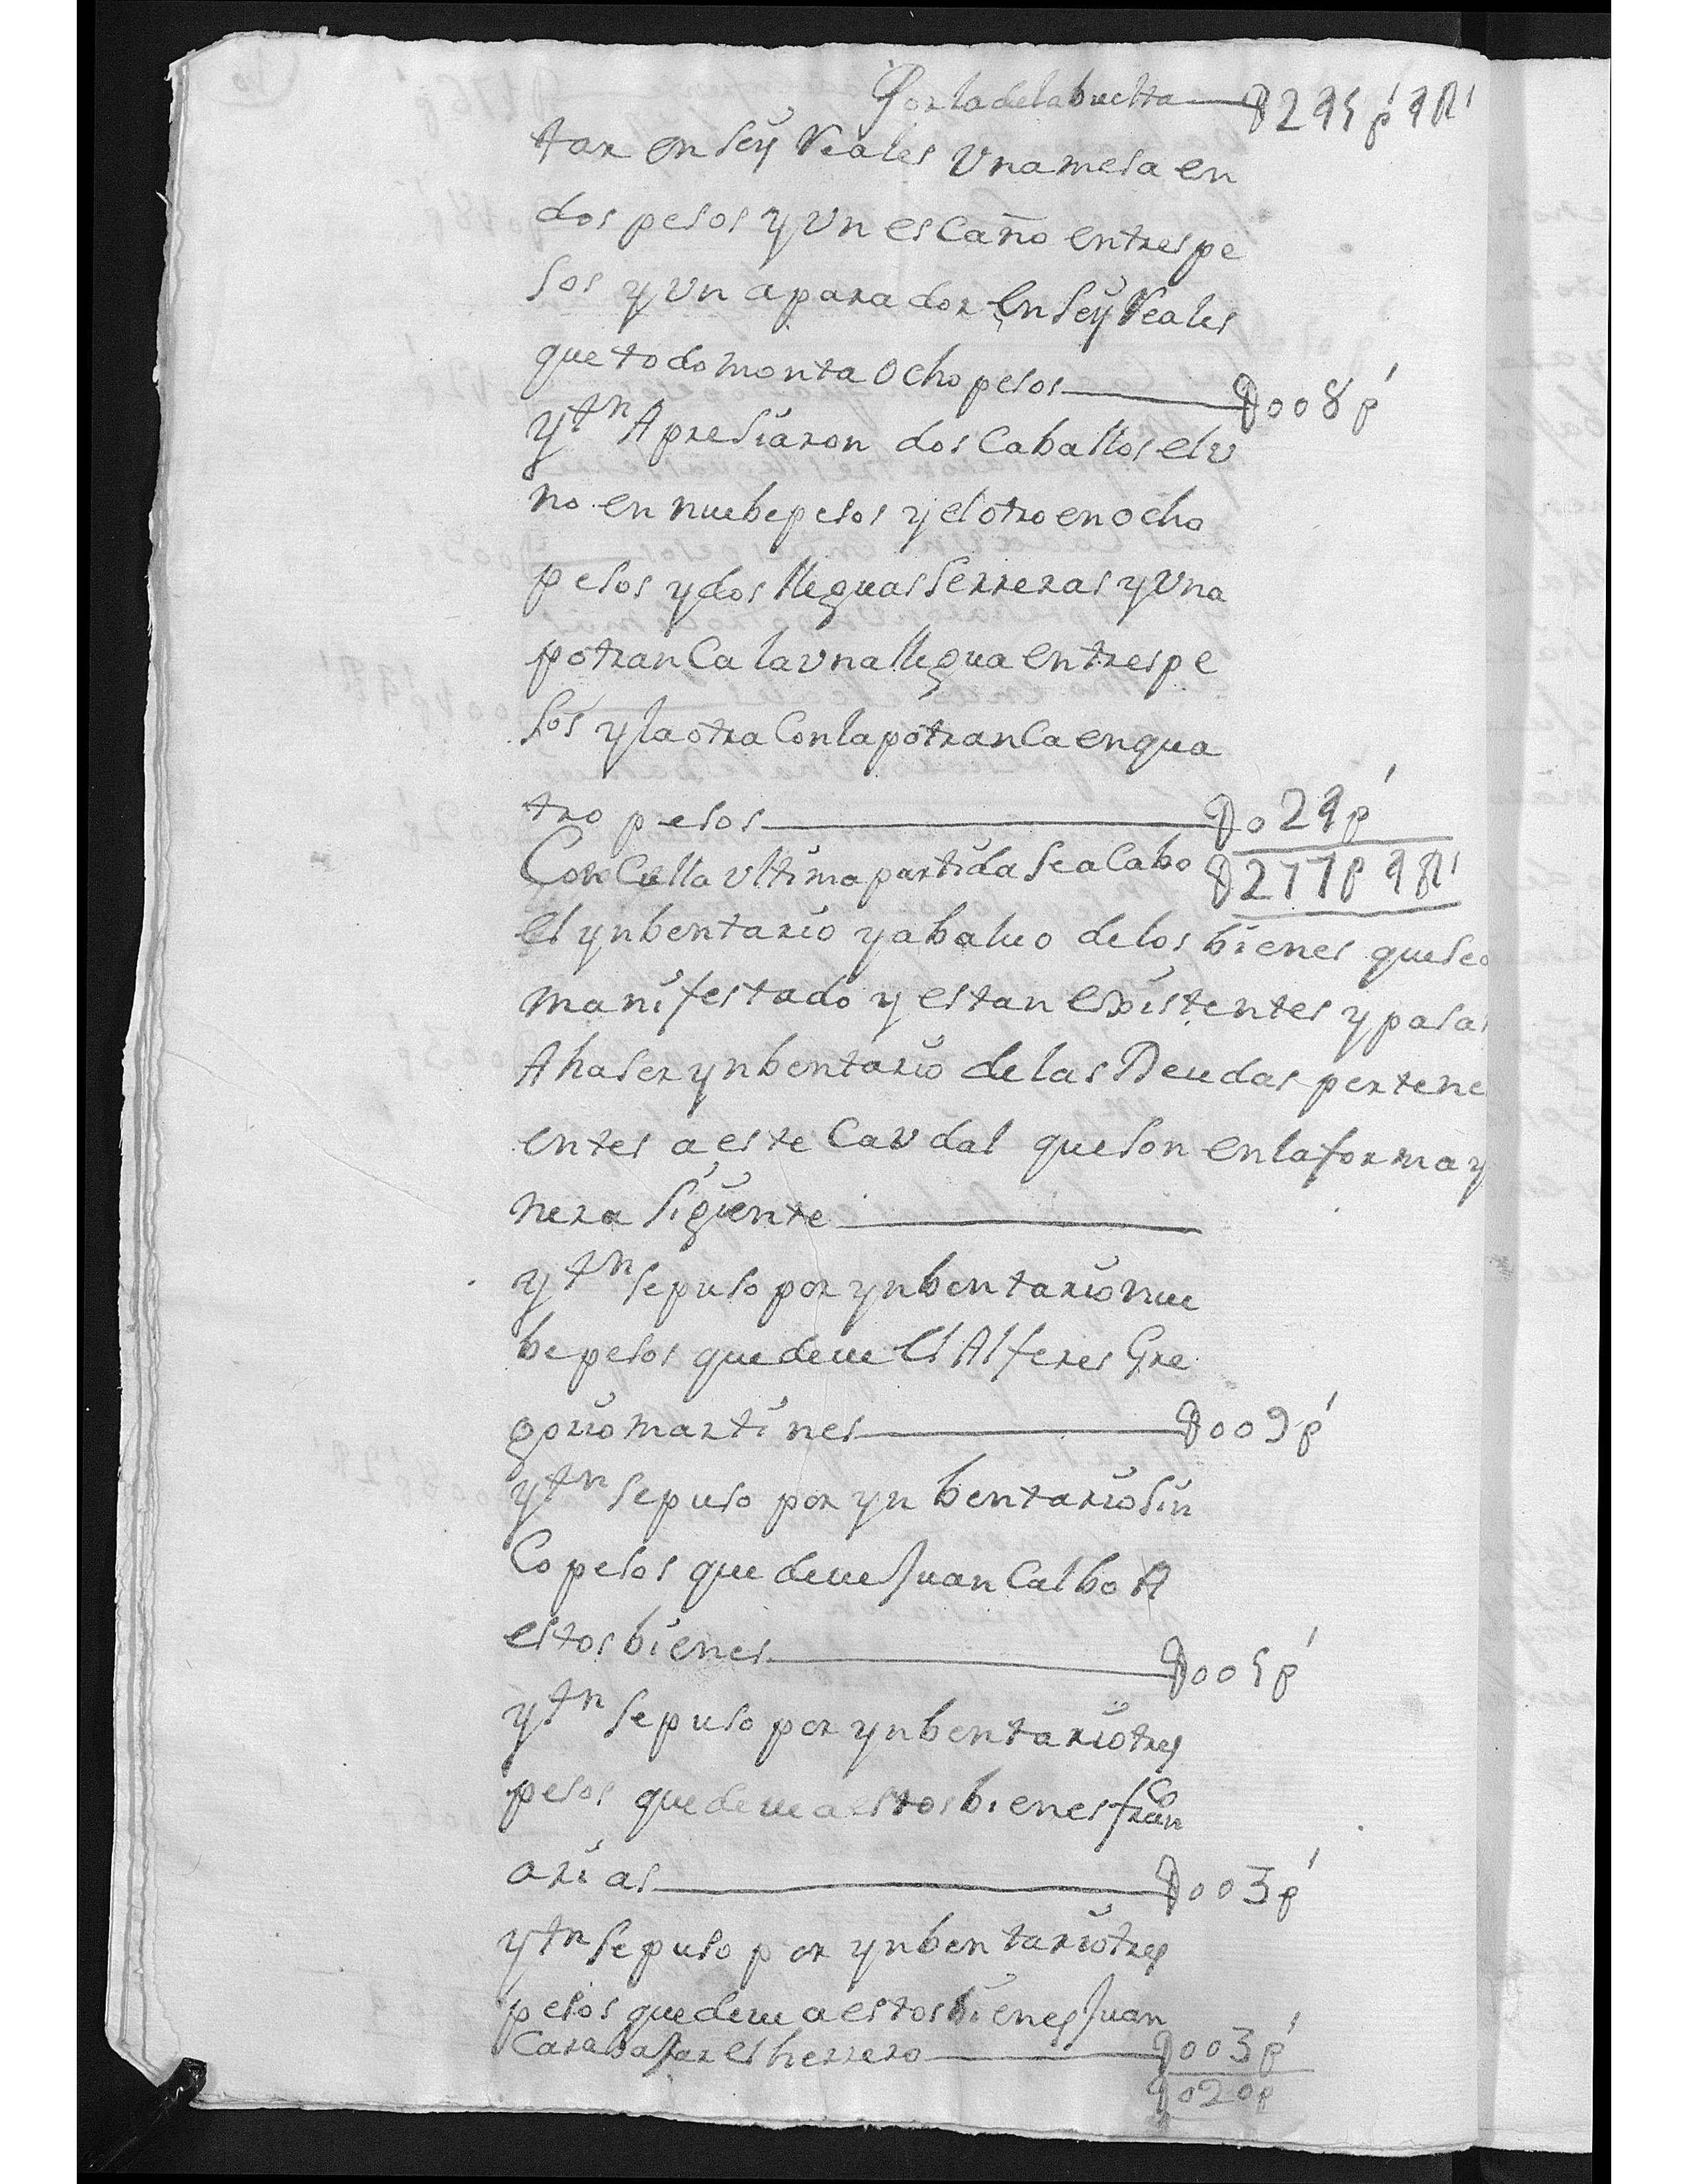 Por la de la buelta — U245 ps 4 Rs
tar en seys Reales Una mesa en
dos pesos y Un escaño en tres pe
sos y Un aparador en seys Reales
que todo monta ocho pesos — U008 ps
ytn Apresiaron dos Caballos el v
no en nuebe pesos y el otro en ocho
pesos y dos lleguas serreras y Una
potranCa la Una llegua en tres pe
sos y la otra Con la potranCa en qua
tro pesos — U024 ps
Con Culla Ultima partida se aCabo U277 p 4 Rs
el ynbentario y abaluo de los bienes que se a
manifestado y estan existentes y pasa
A haser ynbentario de las Deudas pertene
entes a este Caudal que son en la forma y
nera siguente —
ytn se puso por ynbentario nue
be pesos que deue el Alferes Gre
gorio martines — U009 ps
ytn se puso por ynbentario sin
Co pesos que deue Juan Calbo A
estos bienes — U005 ps
ytn se puso por ynbentario tres
pesos que deue a estos bienes franco
arias — U003 ps
ytn se puso por ynbentario tres
pesos que deue a estos bienes Juan
Carabajar el herrero — U003 ps
U020 p